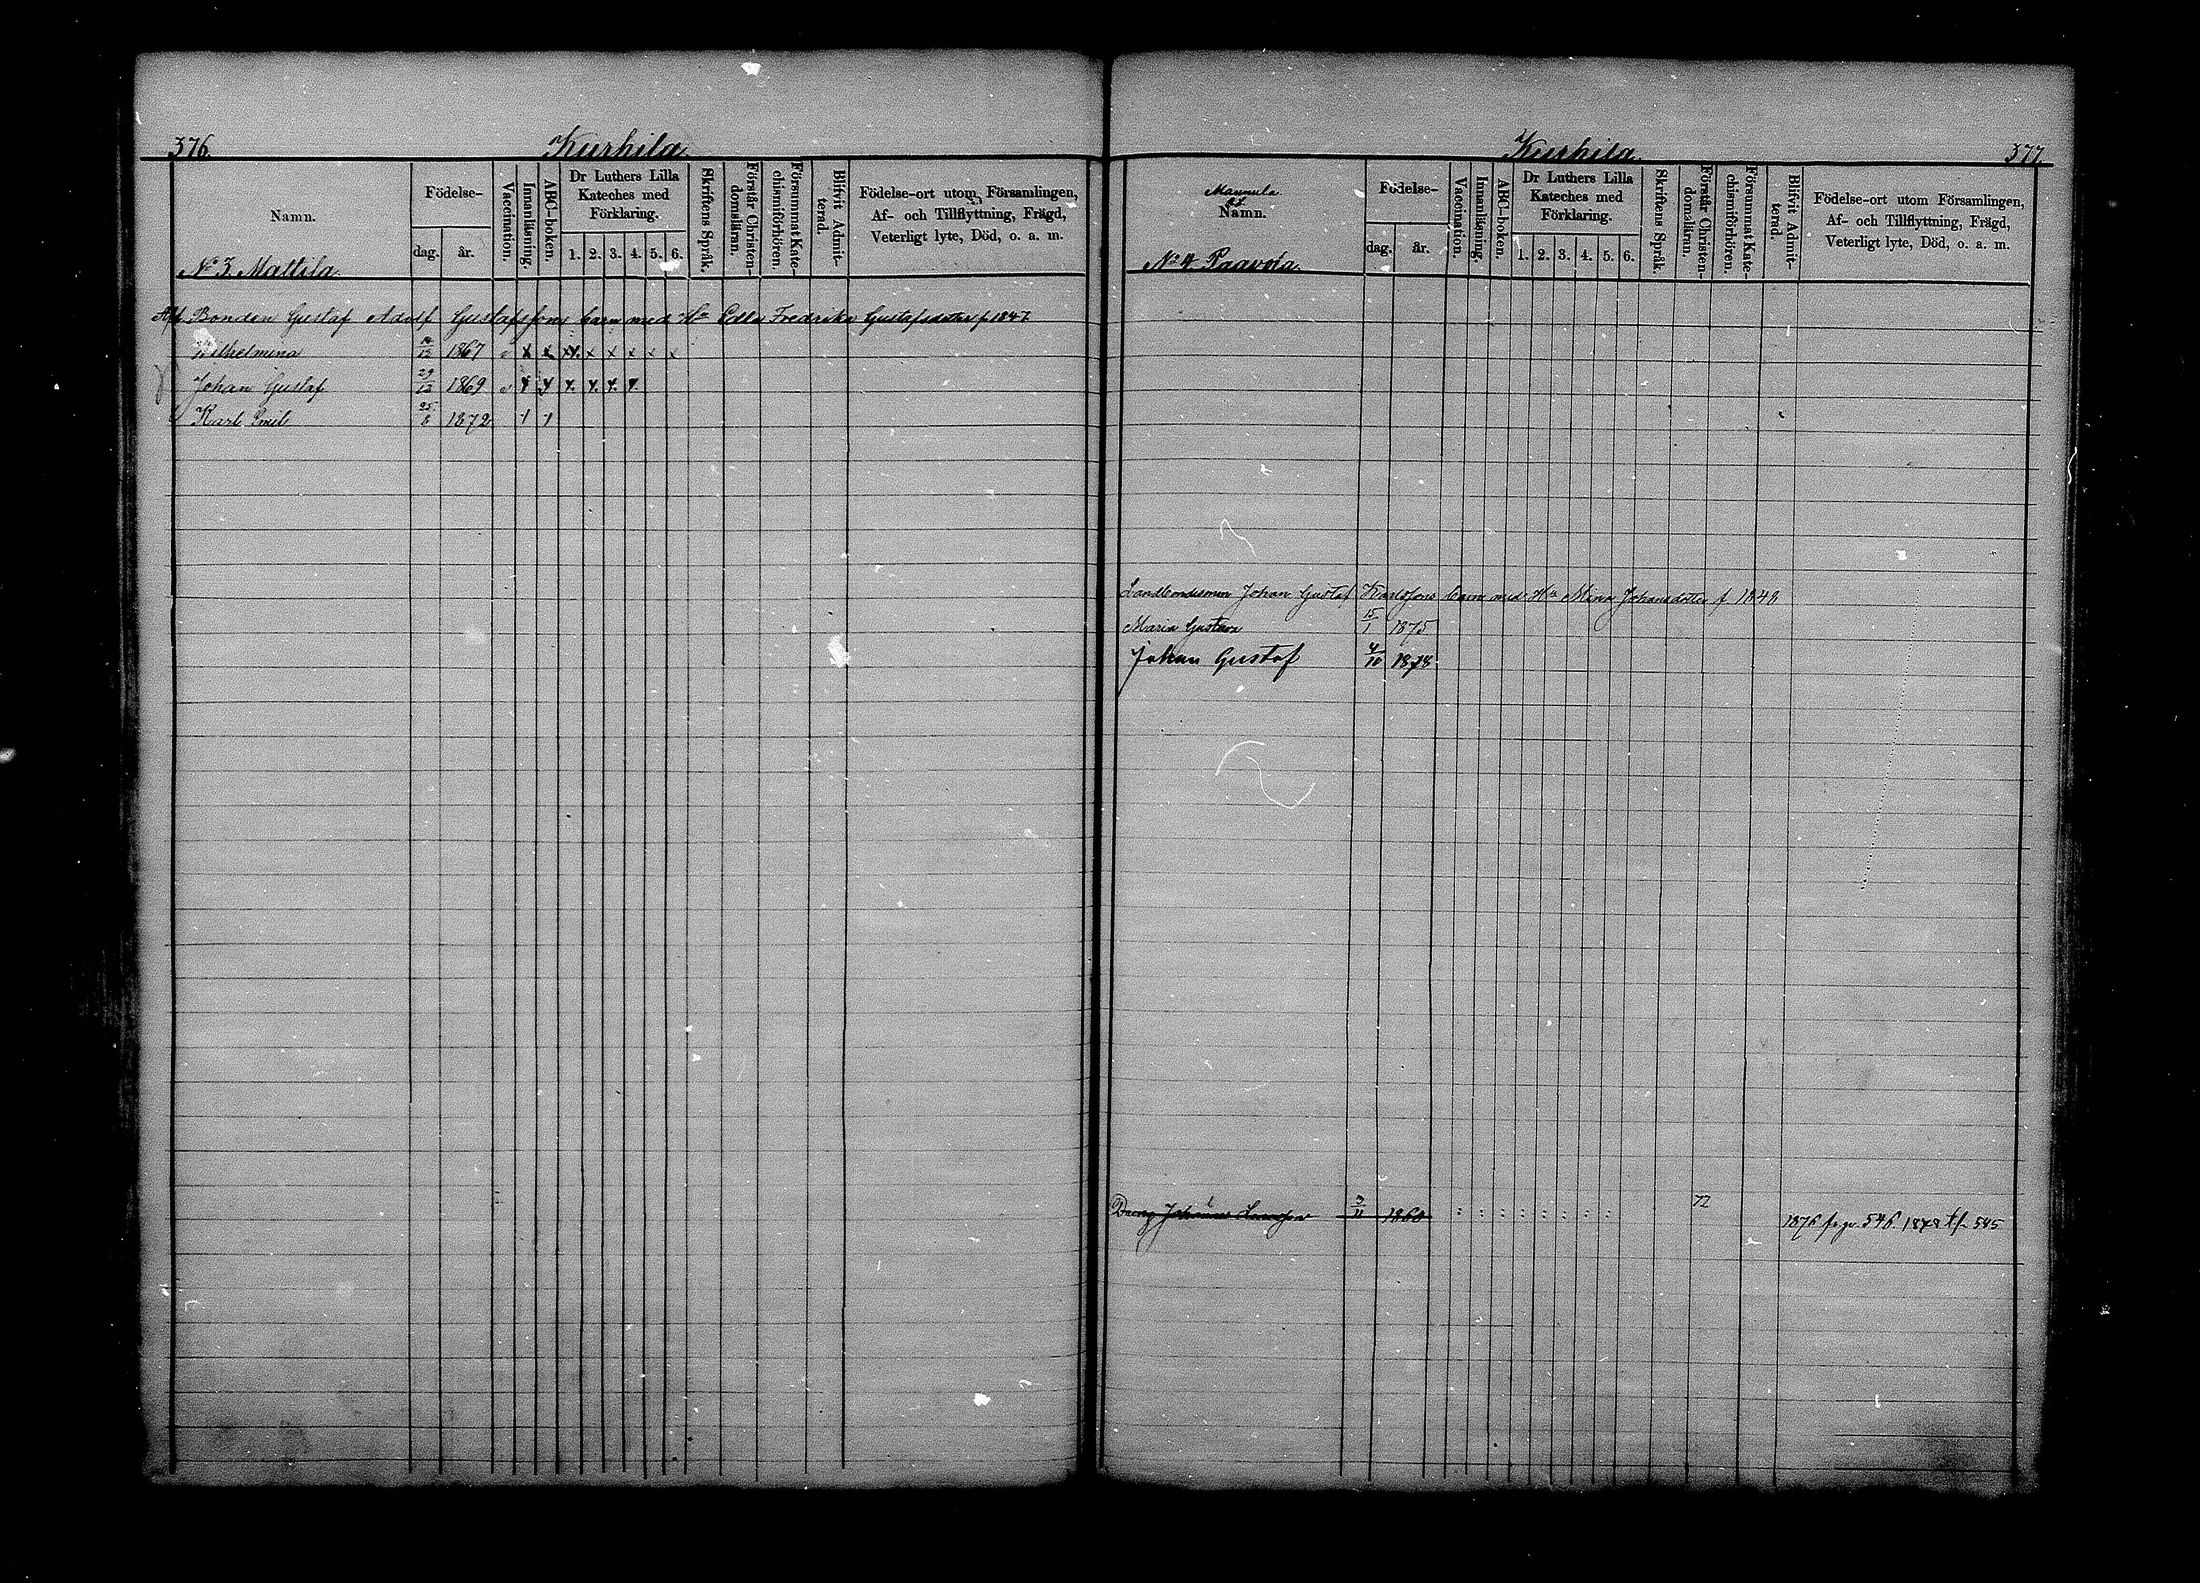 376.
Kurhila.
Namn.
Födelse-
dag. år.
Vaccination.
Innanläsning.
ABC-boken.
Dr Luthers Lilla Kateches med Förklaring.
1. 2. 3. 4. 5. 6.
Skriftens Språk.
Förstår Christendomsläran.
Försummat Katechismiförhören.
Blifvit Admitterad.
Födelse-ort utom Församlingen,
Af- och Tillflyttning, Frägd,
Veterligt lyte, Död, o. a. m.
No 3 Mattila
Bonden Gustaf Adolf Gustafssons barn med Hu Edla Fredrika Gustafsdotter f. 1847
Wilhelmina 14/12 1867
Johan Gustaf 29/12 1869
Karl Emil 25/8 1872
Kurhila.
377.
Mannula
Namn.
Födelse-
dag. år.
Vaccination.
Innanläsning.
ABC-boken.
Dr Luthers Lilla Kateches med Förklaring.
1. 2. 3. 4. 5. 6.
Skriftens Språk.
Förstår Christendomsläran.
Försummat Katechismiförhören.
Blifvit Admitterad.
Födelse-ort utom Församlingen,
Af- och Tillflyttning, Frägd,
Veterligt lyte, Död, o. a. m.
No 4 Paavola
Landbondesonen Johan Gustaf Karlssons barn med Hu Mina Johansdotter f 1848
Maria Gustava 15/1 1875
Johan Gustaf 4/10 1878
Dreng Johannes 3/11 1860 77
1876 fr. 546. 1878 tf. 545